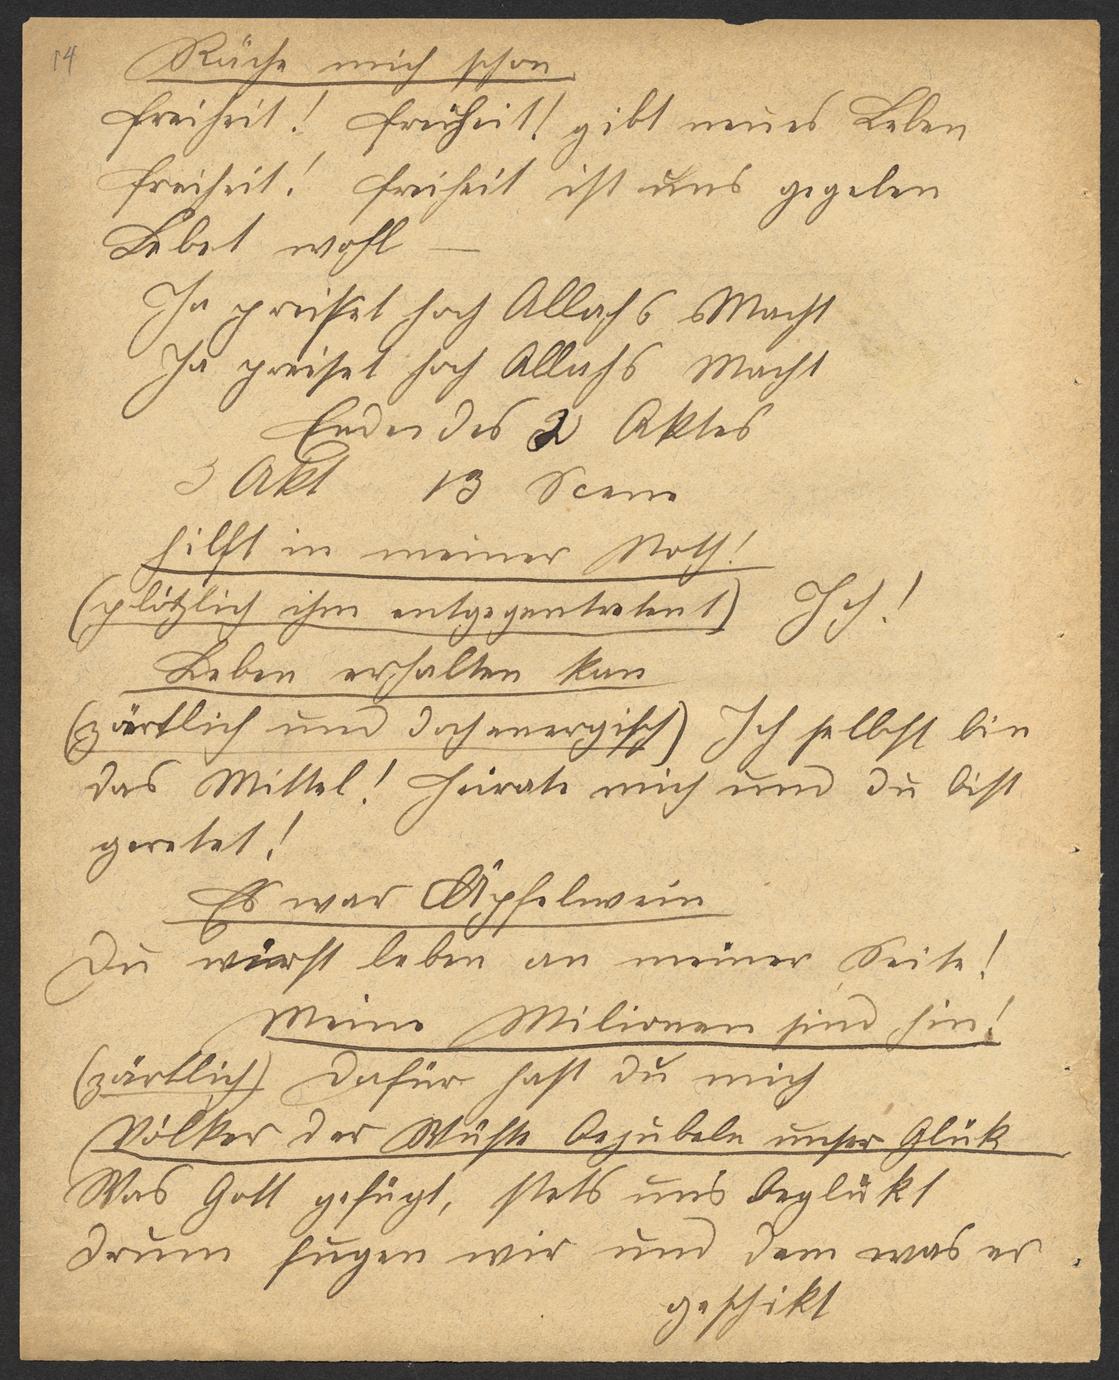 14
Räche mich schon
Freiheit! Freiheit! gibt neues Leben
Freiheit! Freiheit ist uns gegeben
Lebet wohl —
Ja preiset hoch Allahs Macht
Ja preiset hoch Allahs Macht
Ende des 2 Aktes
3 Akt 13 Scene
Hilft in meiner Noth!
(plötzlich ihm entgegentretent) Ich!
Leben erhalten kan
(zärtlich und doch energisch) Ich selbst bin
das Mittel! Heirate mich und du bist
geretet!
Es war Äpfelwein
Du wirst leben an meiner Seite!
Meine Milionen sind hin!
(zärtlich) Dafür hast du mich
Völker der Wüste bejubeln unser Glük
Was Gott gefügt, stets uns beglükt
Drum fügen wir uns dem was er
geschikt